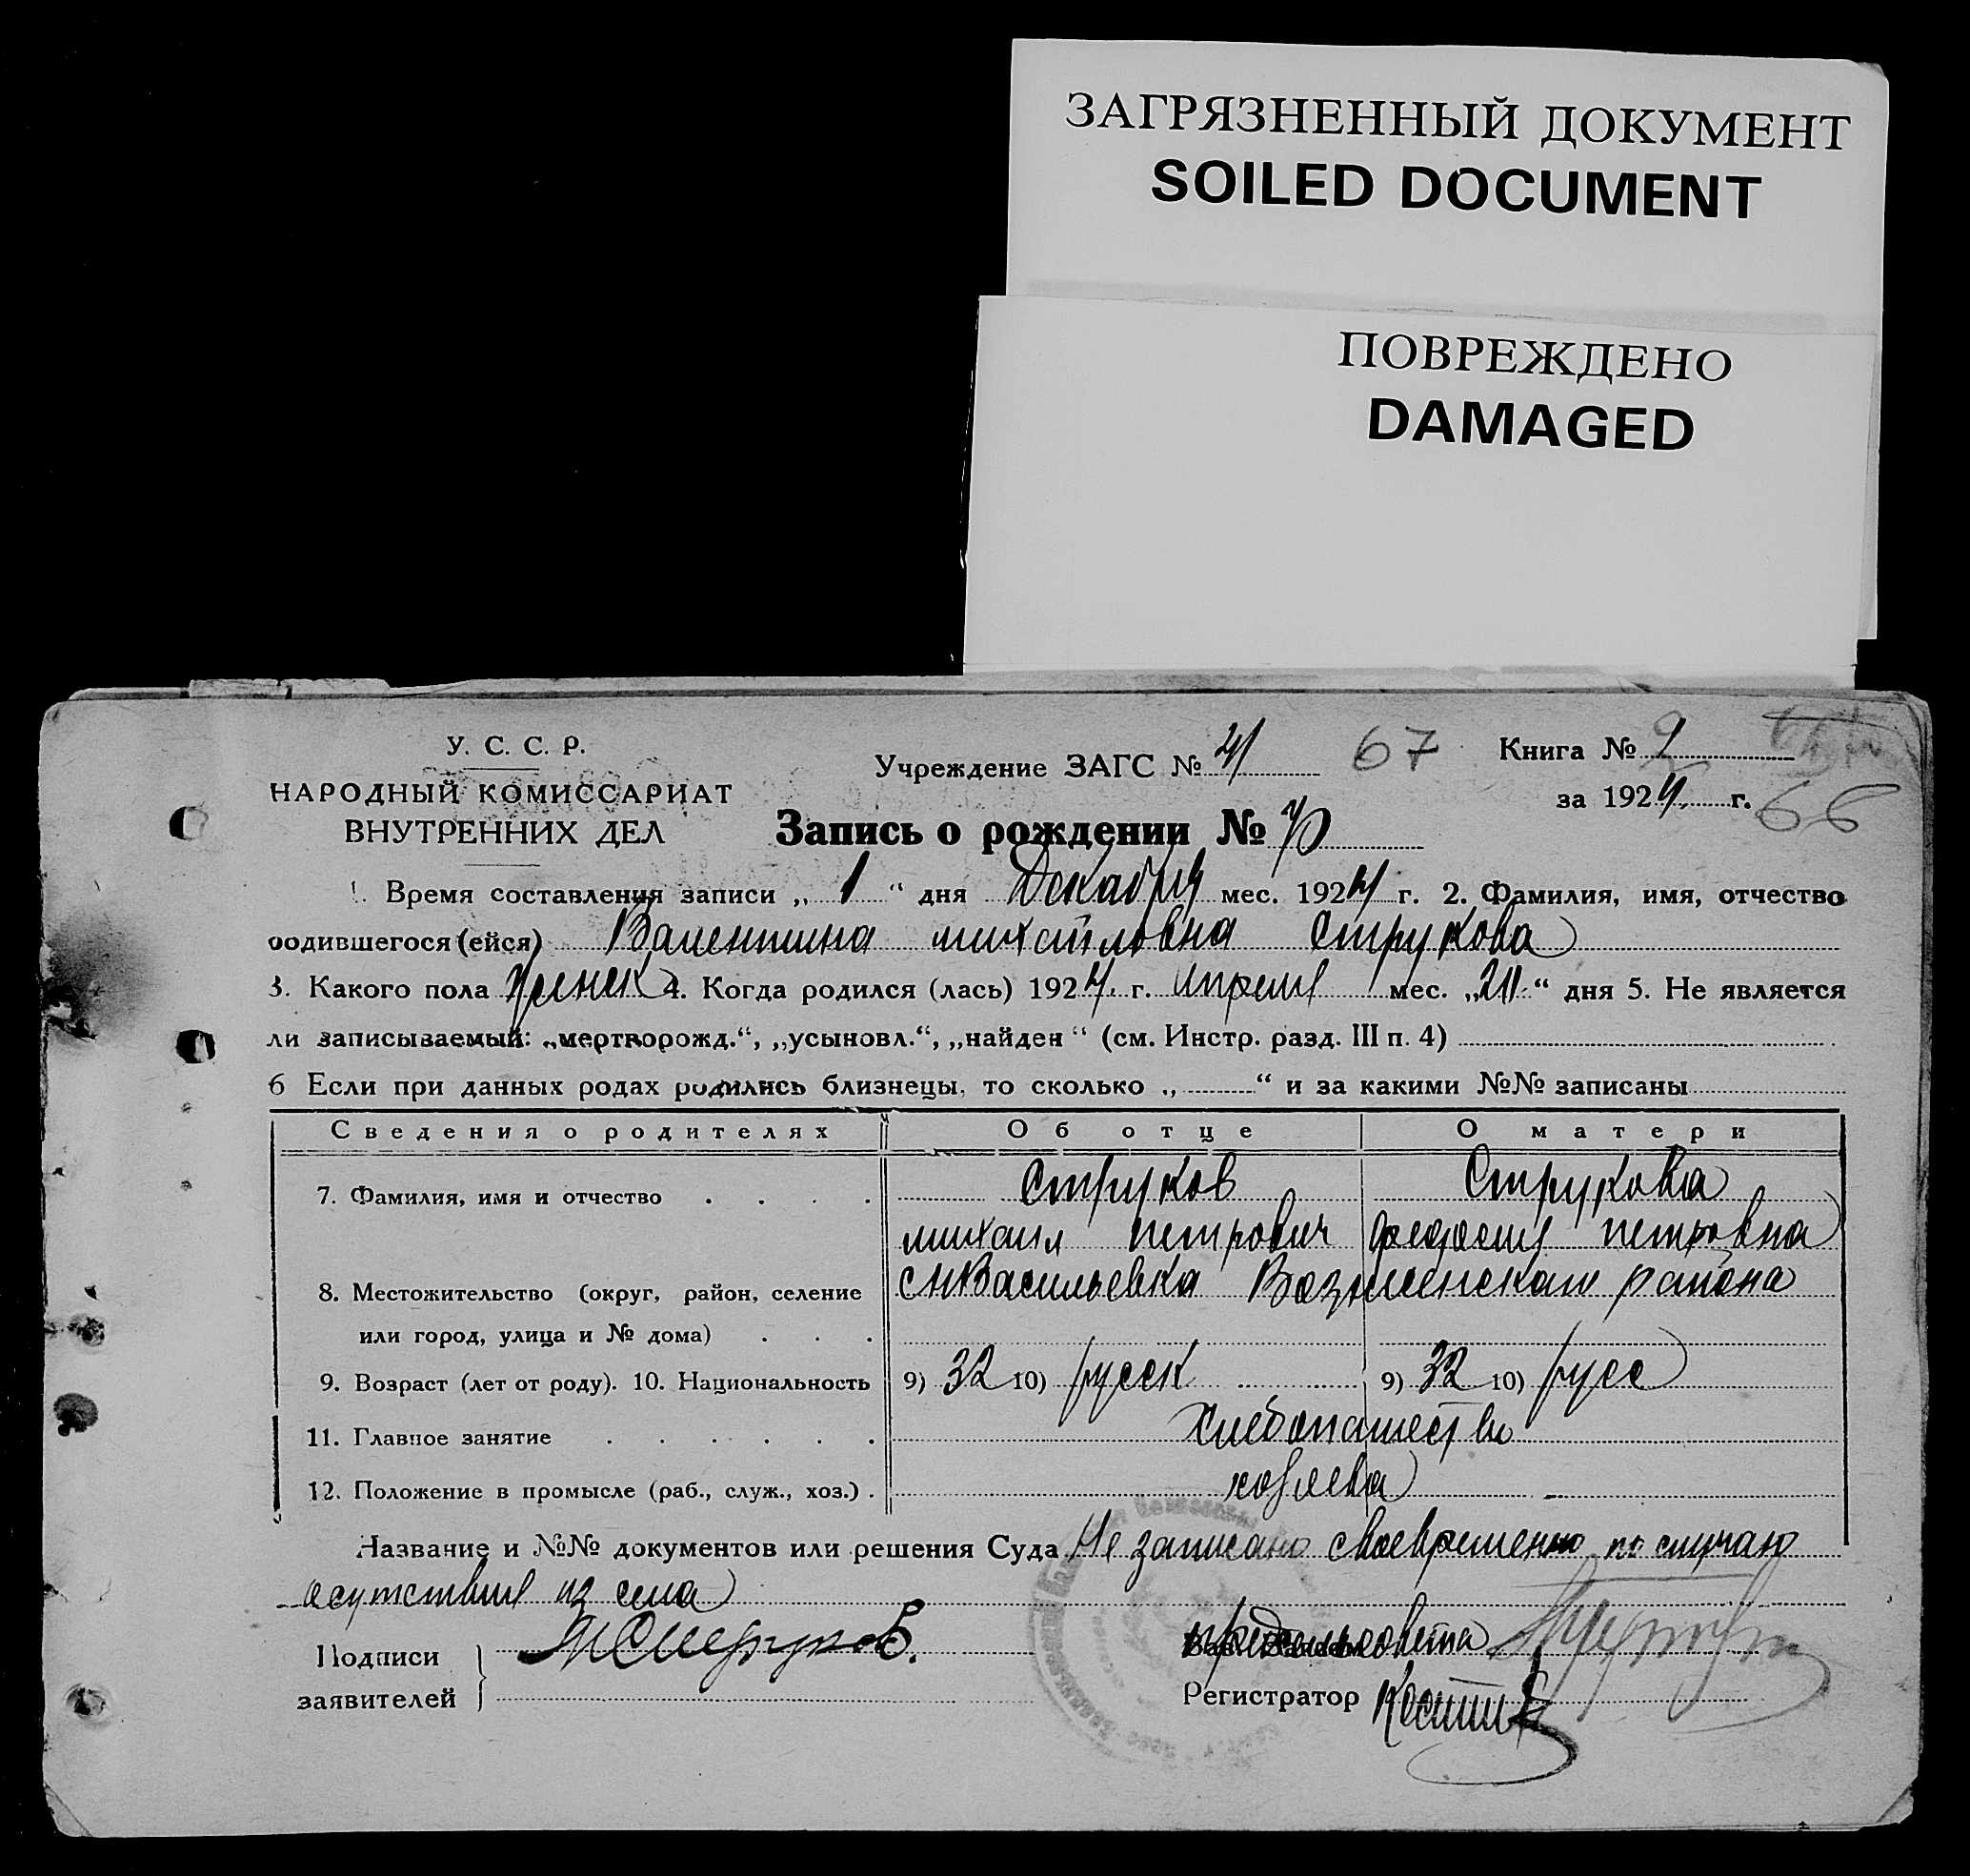 ЗАГРЯЗНЕННЫЙ ДОКУМЕНТ
SOILED DOCUMENT
ПОВРЕЖДЕНО
DAMAGED
У. С. С. Р.
НАРОДНЫЙ КОМИССАРИАТ
ВНУТРЕННИХ ДЕЛ
Учреждение ЗАГС №
67
Книга № 2
за 1924 г.
66
Запись о рождении №
1. Время составления записи „ 1 “ дня Декабря мес. 1924 г. 2. Фамилия, имя, отчество
родившегося (ейся) Валентина михайловна Струкова
3. Какого пола женск 4. Когда родился (лась) 1924 г. апреля мес. „ “ дня 5. Не является
ли записываемый: „мертворожд.“, „усыновл.“, „найден“ (см. Инстр. разд. III п. 4)
6 Если при данных родах родились близнецы, то сколько „ “ и за какими №№ записаны
Сведения о родителях Об отце О матери
7. Фамилия, имя и отчество Струков Струкова
михаил петрович федосия петровна
8. Местожительство (округ, район, селение с Васильевка района
или город, улица и № дома)
9. Возраст (лет от роду). 10. Национальность 9) 32 10) русск 9) 32 10) русс
11. Главное занятие Хлебопашество
12. Положение в промысле (раб., служ., хоз.)
Название и №№ документов или решения Суда Не записано своевременно по случаю
осутствия из села
Подписи
заявителей
предсельсовета
Регистратор